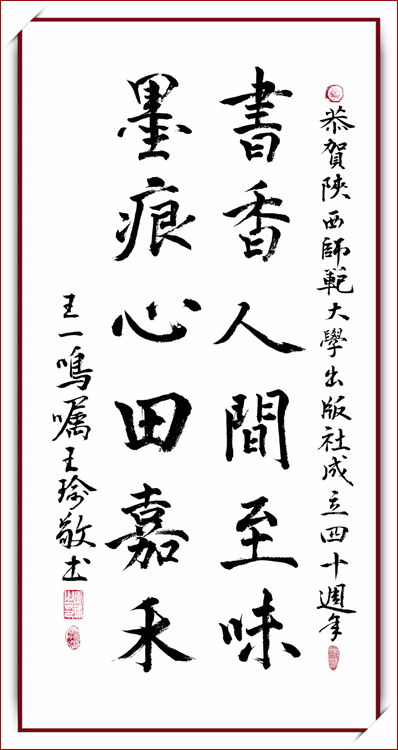 恭賀陝西師範大學出版社成立四十週年
書香人間至味
墨痕心田嘉禾
王一鳴囑王瑜敬書